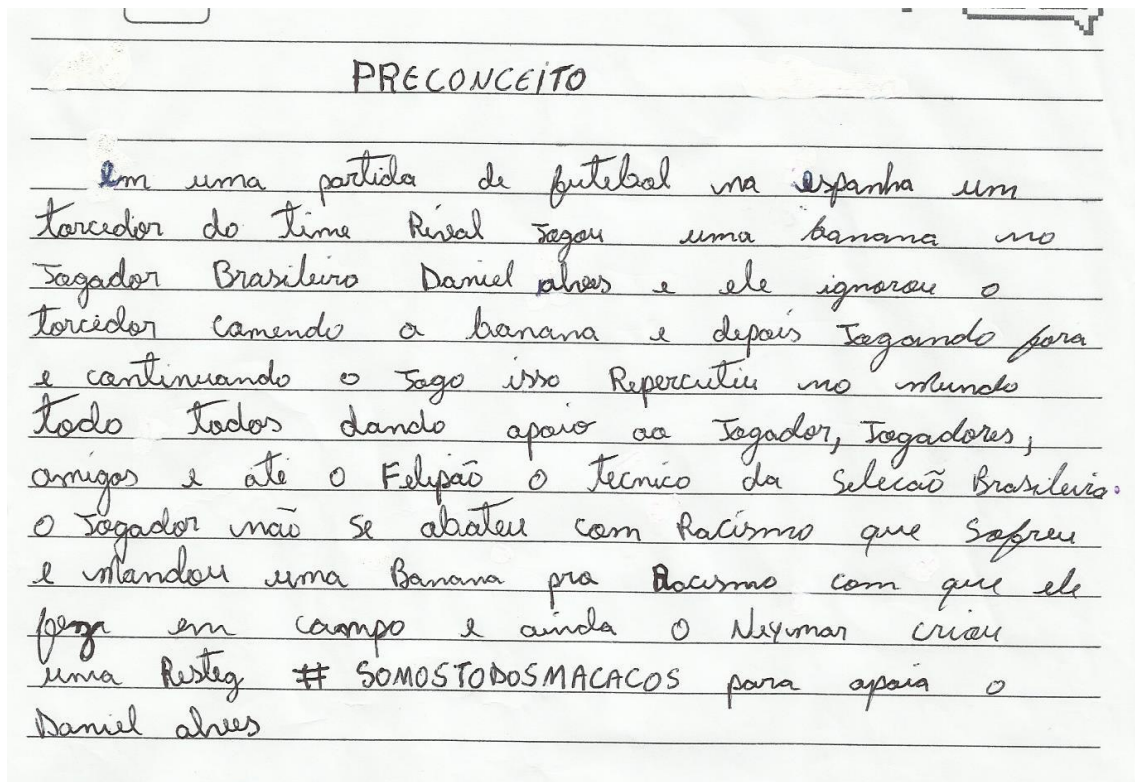 PRECONCEITO
em uma partida de futebol na espanha um
torcedor do time Rival Jogou uma banana no
Jogador Brasileiro Daniel alves e ele ignorou o
torcedor comendo a banana e depois Jogando fora
e continuando o Jogo isso Repercutiu no mundo
todo todos dando apoio ao Jogador, Jogadores,
amigos e até o Felipão o tecnico daSelecão Brasileira.
O Jogador não se abateu com Racismo que Sofreu
e Mandou uma Banana pra Racismo com que ele
em campo e ainda o Neymar criou
uma Resteg # SOMOSTODOSMACACOS para apoia o
Daniel alves